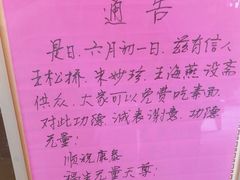 通告
是日，六月初一日，兹有信人
王松桥、朱妙珍、王海燕设斋
供众，大家可以免费吃素面，
对此功德，诚表谢意，功德
无量：
顺祝康泰
福生无量天尊！